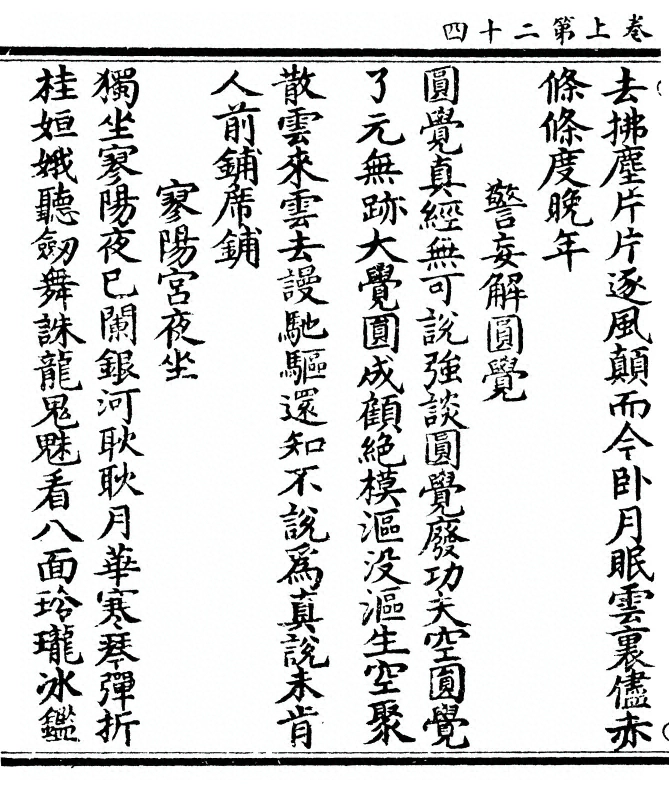 卷上第二十四
去拂塵片片逐風顛而今卧月眠雲裏儘赤
條條度晚年
警妄解圓覺
圓覺真經無可說強談圓覺廢功夫空圓覺
了元無跡大覺圓成頋絕模漚没漚生空聚
散雲來雲去謾馳驅還知不說爲真說未肯
人前鋪席鋪
寥陽宮夜坐
獨坐寥陽夜已闌銀河耿耿月華寒琴彈折
桂姮娥聽劒舞誅龍鬼魅看八面玲瓏冰鑑